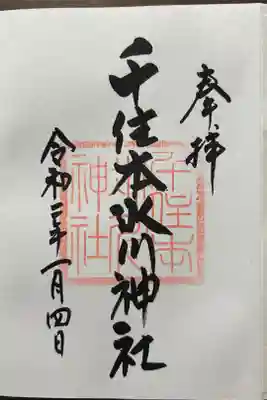 奉拝
千住本氷川神社
令和二年一月四日
千住本
氷川
神社